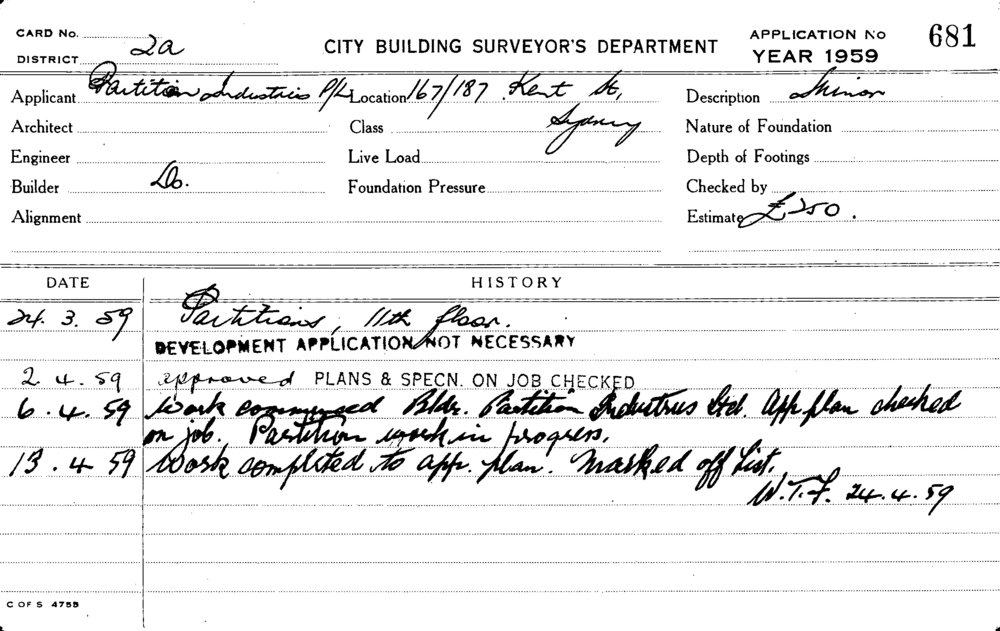 CARD No. CITY BUILDING SURVEYOR'S DEPARTMENT APPLICATION No 681
DISTRICT 2a YEAR 1959
Applicant Partition Industries P/L Location 167/187 Kent St, Description Minor
Architect Class Sydney Nature of Foundation
Engineer Live Load Depth of Footings
Builder Do. Foundation Pressure Checked by
Alignment Estimate £250.
DATE HISTORY
24. 3. 59 Partitions, 11th floor.
DEVELOPMENT APPLICATION NOT NECESSARY
2 4. 59 approved PLANS & SPECN. ON JOB CHECKED
6. 4. 59 Work commenced Bldr. Partition Industries Ltd. App. plan checked
on job. Partition work in progress.
13. 4 59 Work completed to app. plan. Marked off List.
W.T.F. 24.4.59
C OF S 475B